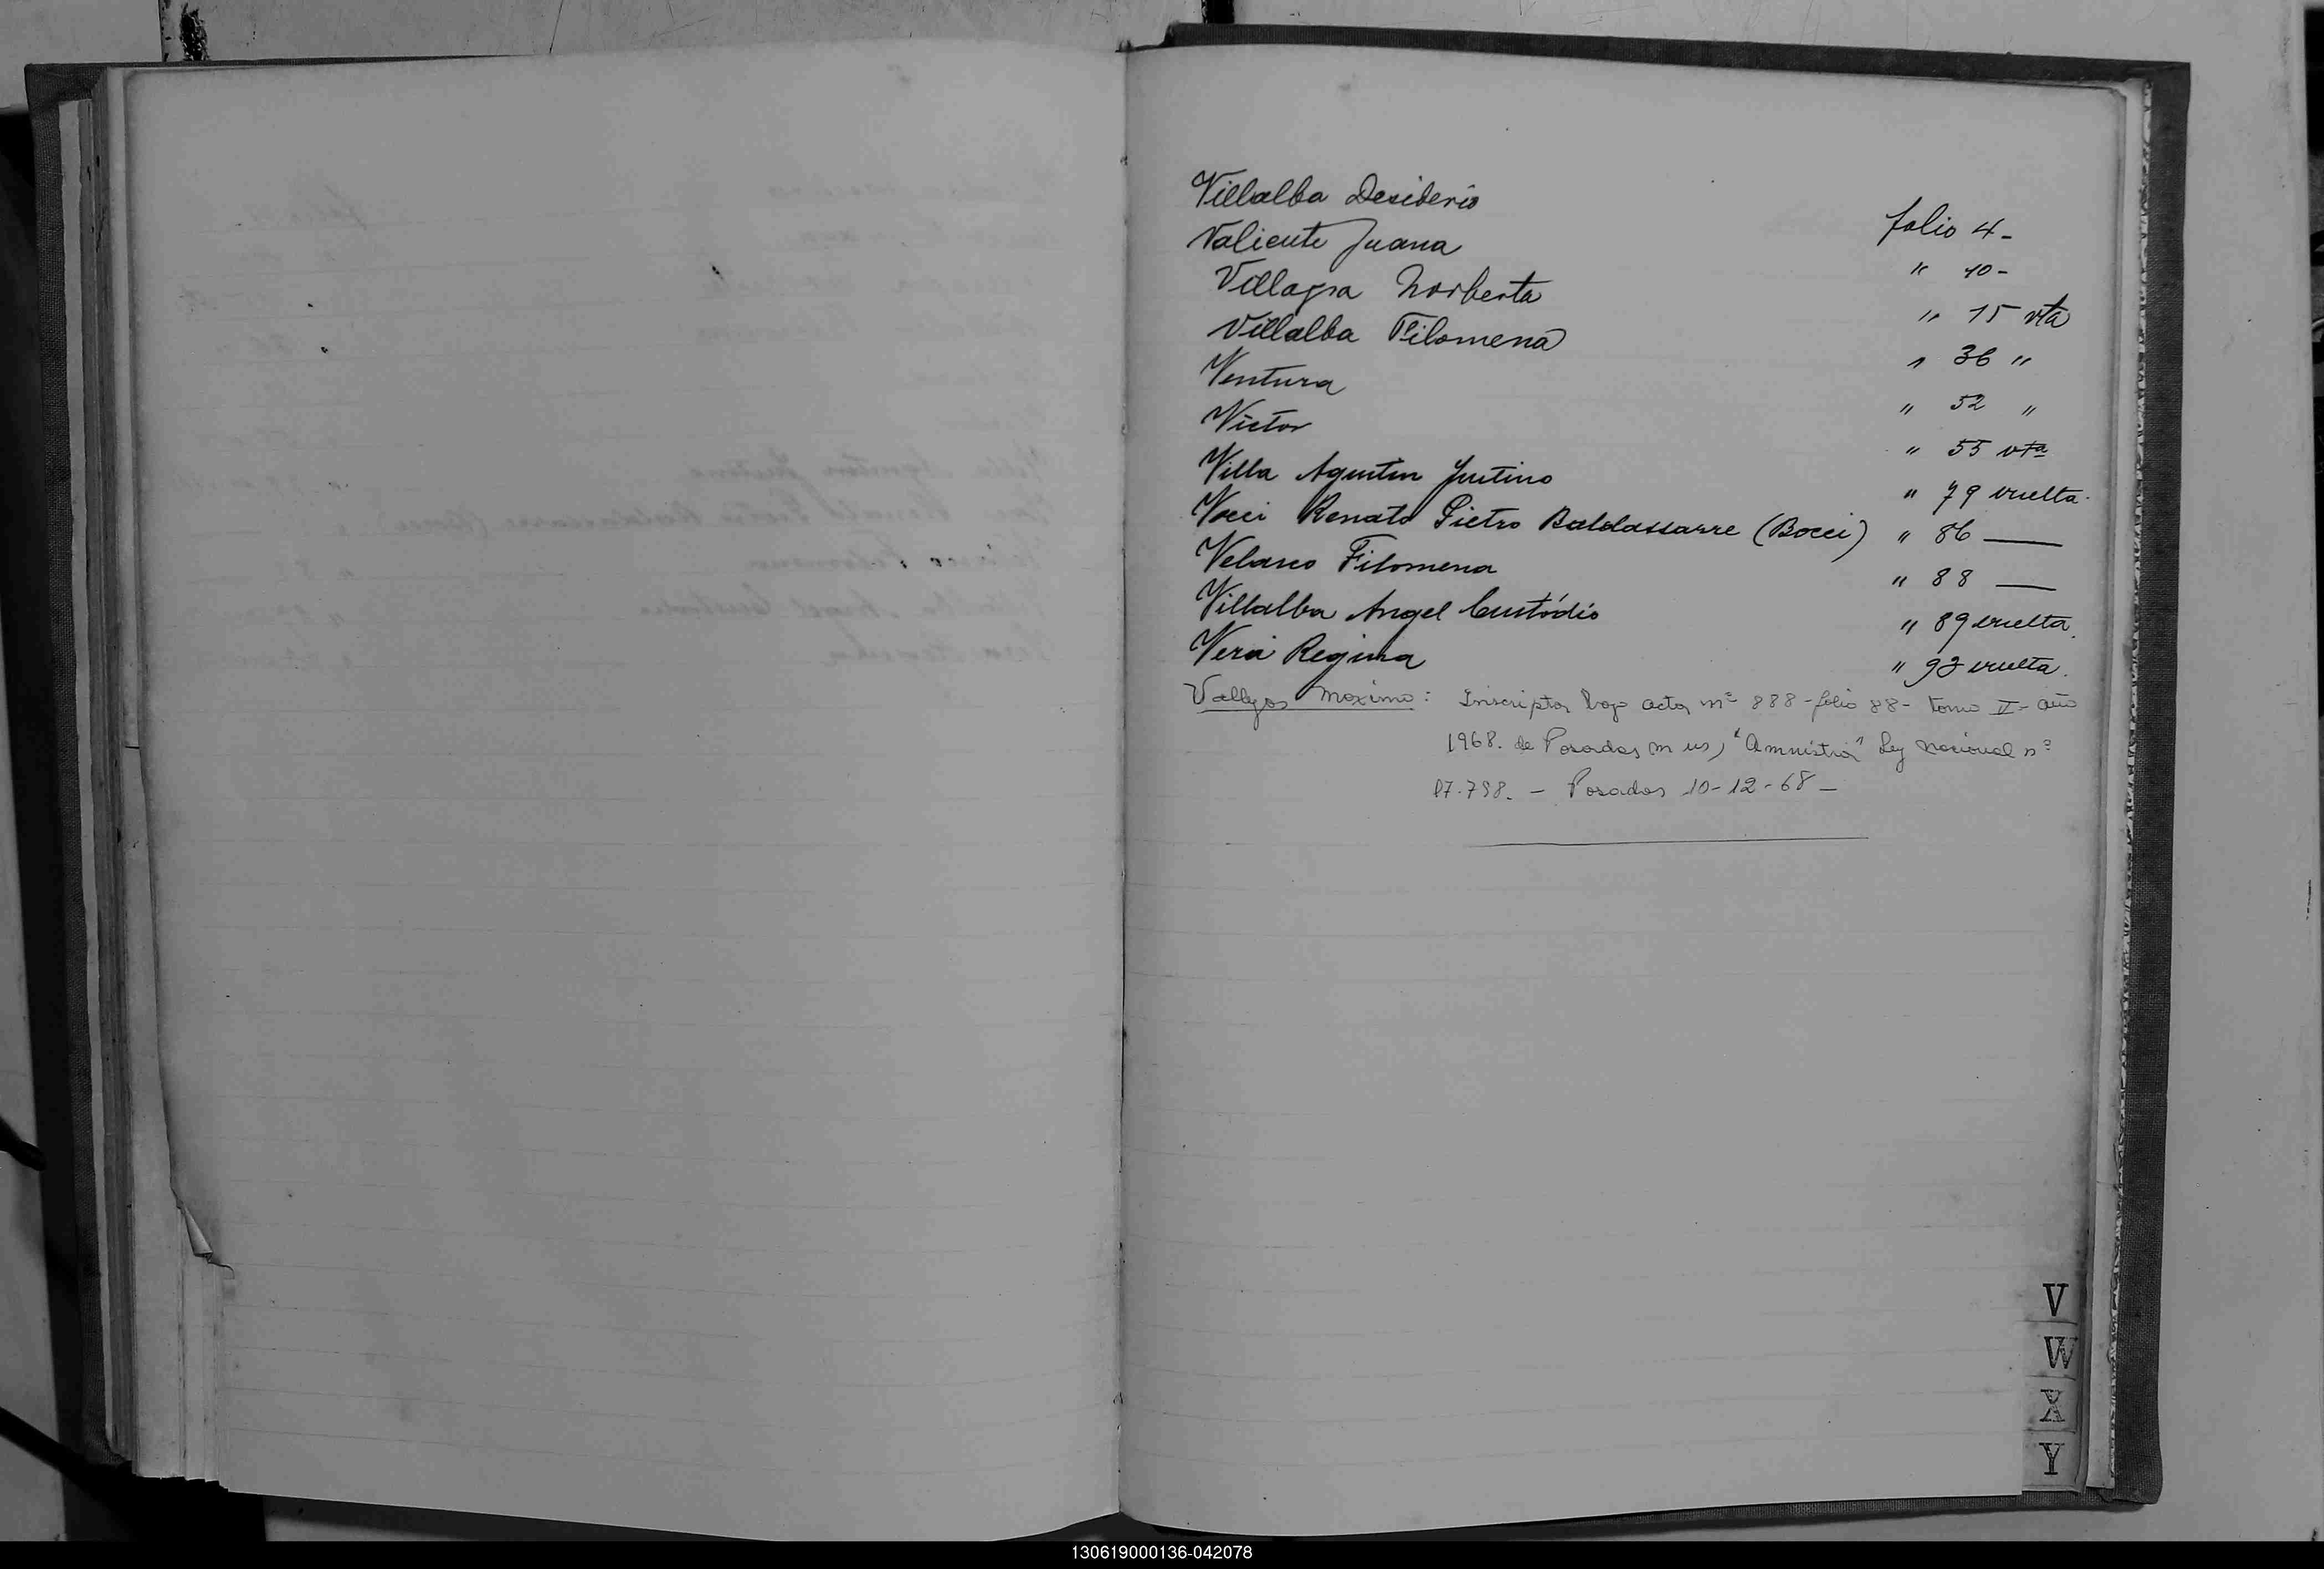 Villalba Desiderio folio 4-
Valiente Juana " 10-
Villagra Norberta " 15 vta
Villalba Filomena " 36 "
Ventura " 52 "
Victor " 55 vta
Villa Agustin Justino " 79 vuelta.
Vocci Renato Pietro Baldassarre (Bocci) " 86 —
Velasco Filomena " 88 —
Villalba Angel Custódio " 89 vuelta.
Vera Regina " 93 vuelta.
Vallejos Maximo: Inscripta bajo acta nº 888 - folio 88 - tomo II - año
1968. de Posadas "Amnistia" Ley nacional nº
17.798. - Posadas 10-12-68 -
V
W
X
Y
130619000136-042078